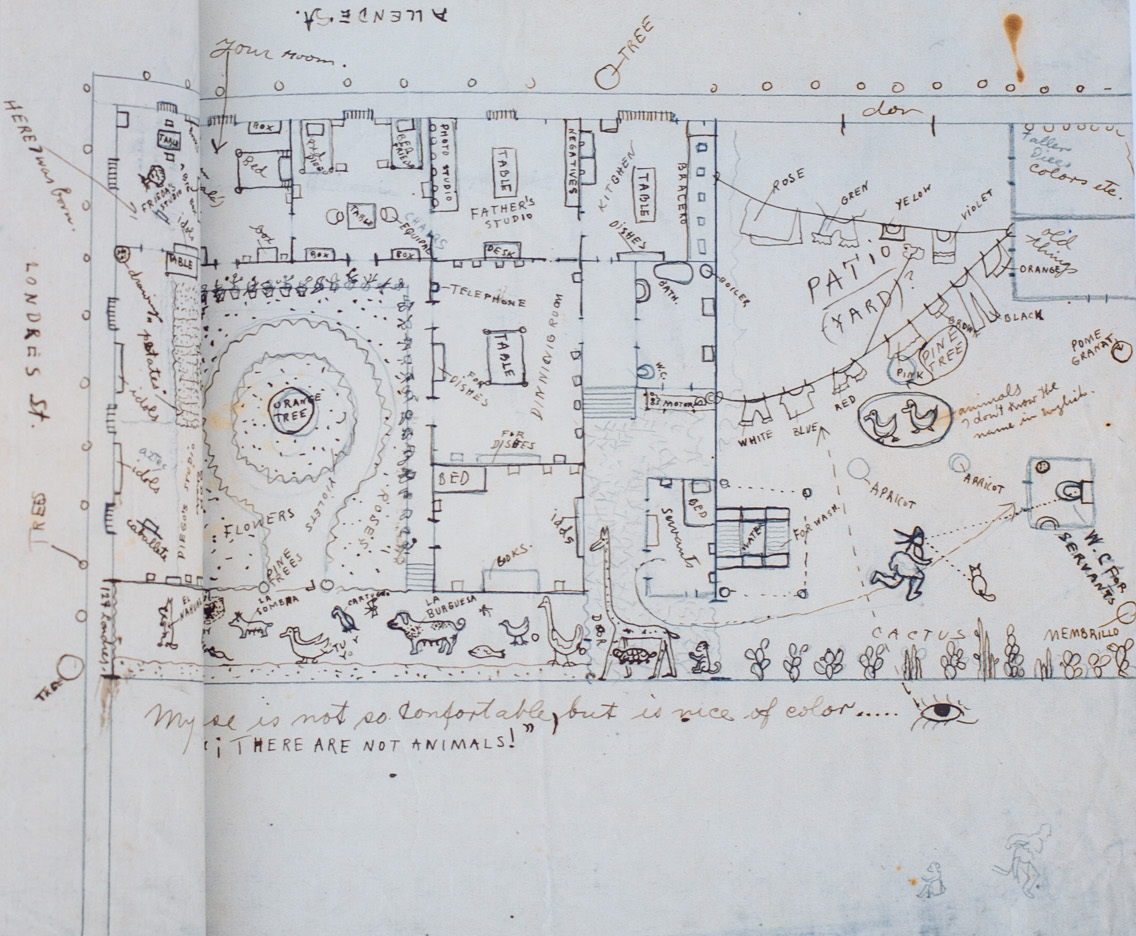 ALLENDE St.
Your room.
TREE
HERE I was born.
LONDRES St.
TREES
TREE
door
TABLE
FRIEDA'S
BOX
Bed
BED
TABLE
CHAIRS
EQUIPAL
box
BOX
BOX
PHOTO STUDIO
TABLE
FATHER'S
STUDIO
DESK
NEGATIVES
KITCHEN
TABLE
DISHES
BRACERO
ROSE
GREN
YELOW
VIOLET
Fallen
colors etc.
old
things
ORANGE
PATIO
(YARD)
?
BROWN
BLACK
PINE
TREE
PINK
RED
BLUE
WHITE
POME
GRANAT
animals
I don't know the
name in english.
APRICOT
APRICOT
BATH.
BOILER
W.C.
MOTOR
TELEPHONE
TABLE
FOR
DISHES
DINNING ROOM
FOR
DISHES
TABLE
drawings
idols
aztec
idols
DIEGO'S STUDIO
ORANGE
TREE
FLOWERS
VIOLETS
ROSES
PINE
TREES
BED
idols
BOOKS
Servant
BED
WATER
FOR WASH
W.C FOR
SERVANTS
LA
SOMBRA
TU Y YO
LA
BURGUESA
DOOR
CACTUS
MEMBRILLO
My se is not so confortable, but is nice of color.....
"¡THERE ARE NOT ANIMALS!"